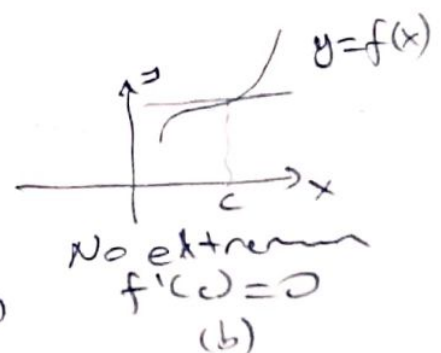 y=f(x)
y
x
c
No extremum
f'(c)=0
(b)